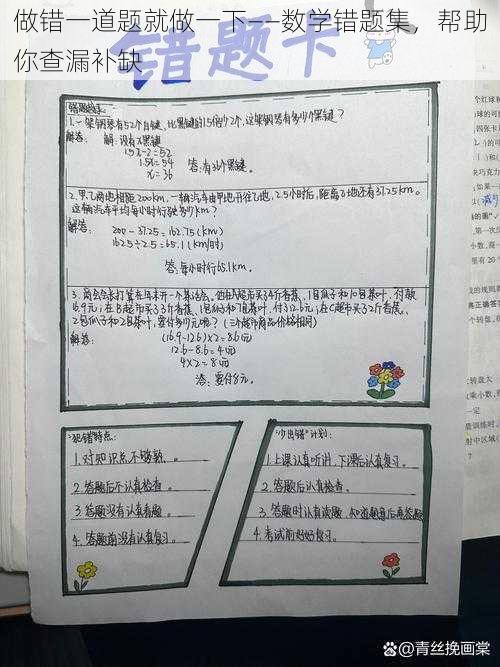 做错一道题就做一下——数学错题集，帮助
你查漏补缺
错题卡
错题题集:
1.一架钢琴有52个白键,比黑键的1.5倍少2个,这架钢琴有多少个黑键?
解答: 解:设有x黑键
1.5x-2=52
1.5x=54
x=36
答:有36个黑键。
2.甲乙两地相距200km.一辆汽车由甲地开往乙地,2.5小时后,距离乙地还有37.25km.
这辆汽车平均每小时行驶多少km?
解答: 200-37.25=162.75(km)
162.5÷2.5=65.1(km/时)
答:每小时行65.1km.
3.
2包瓜子和2包茶叶,要付多少元呢?(三个超市商品价格相同)
解答: (16.9-12.6)×2=8.6(元)
12.6-8.6=4(元)
4×2=8(元)
答:要付8元。
"犯错"特点:
1.对知识点不够熟。
2.答题后不认真检查。
3.答题没有认真看题。
4.答题前没有认真复习。
"少出错"计划:
1.上课认真听讲,下课后认真复习。
2.答题后认真检查。
3.答题时认真读题,知道题意后再答题
4.考试前好好复习。
百家号@青丝挽画棠